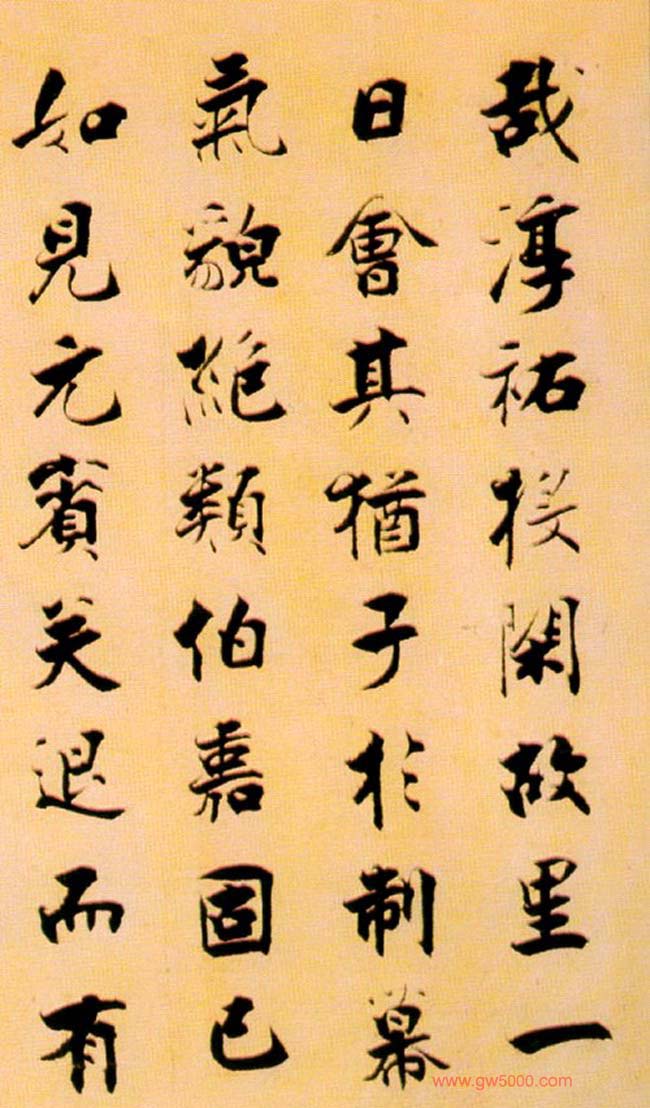 哉淳祐投閑故里一
日會其猶子於制幕
氣貌絶類伯嘉固已
如見元賓矣退而有
www.gw5000.com